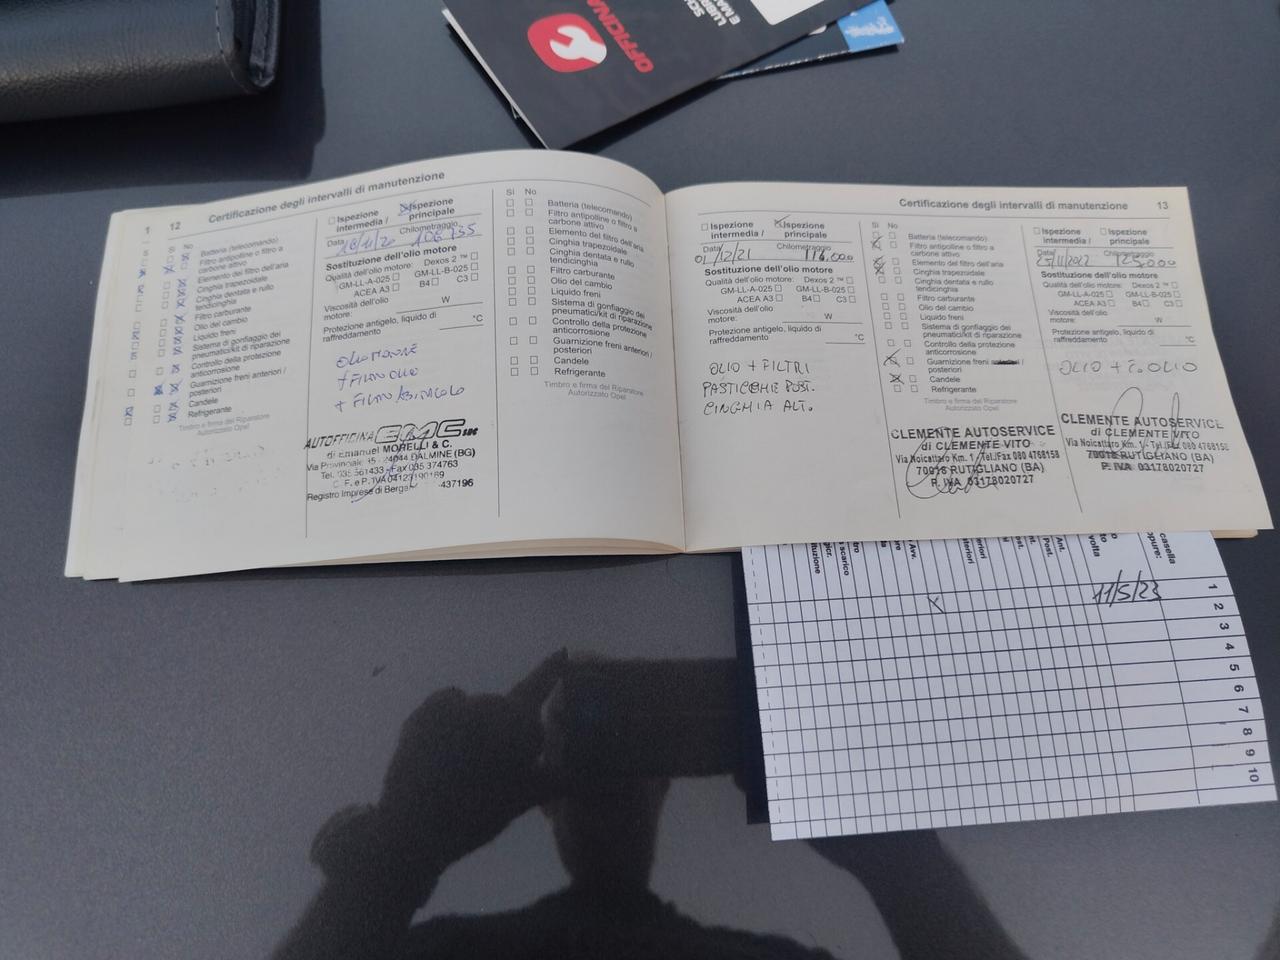 OFFICINA
LUBR
E MA
12
Certificazione degli intervalli di manutenzione
Sì No
Batteria (telecomando)
Filtro antipolline o filtro a
carbone attivo
Elemento del filtro dell'aria
Cinghia trapezoidale
Cinghia dentata e rullo
tendicinghia
Filtro carburante
Olio del cambio
Liquido freni
Sistema di gonfiaggio dei
pneumatici/kit di riparazione
Controllo della protezione
anticorrosione
Guarnizione freni anteriori /
posteriori
Candele
Refrigerante
Timbro e firma del Riparatore
Autorizzato Opel
Ispezione
intermedia /
Ispezione
principale
Data
Chilometraggio
18/11/20
Sostituzione dell'olio motore
Qualità dell'olio motore: Dexos 2 ™
GM-LL-A-025 GM-LL-B-025
ACEA A3 B4 C3
Viscosità dell'olio
motore: W
Protezione antigelo, liquido di
raffreddamento °C
OLIO MOTORE
+ FILTRO OLIO
+ FILTRO ABITACOLO
AUTOFFICINA EMC snc
di Emanuel MORELLI & C.
Via Provinciale 24044 DALMINE (BG)
Fax 035 374763
C. F. e P. IVA
Registro Imprese di 437196
Sì No
Batteria (telecomando)
Filtro antipolline o filtro a
carbone attivo
Elemento del filtro dell'aria
Cinghia trapezoidale
Cinghia dentata e rullo
tendicinghia
Filtro carburante
Olio del cambio
Liquido freni
Sistema di gonfiaggio dei
pneumatici/kit di riparazione
Controllo della protezione
anticorrosione
Guarnizione freni anteriori /
posteriori
Candele
Refrigerante
Timbro e firma del Riparatore
Autorizzato Opel
Certificazione degli intervalli di manutenzione
13
Ispezione
intermedia /
Ispezione
principale
Data
Chilometraggio
01/12/21 116.000
Sostituzione dell'olio motore
Qualità dell'olio motore: Dexos 2 ™
GM-LL-A-025 GM-LL-B-025
ACEA A3 B4 C3
Viscosità dell'olio
motore: W
Protezione antigelo, liquido di
raffreddamento °C
OLIO + FILTRI
PASTICCHE POST.
CINGHIA ALT.
Sì No
Batteria (telecomando)
Filtro antipolline o filtro a
carbone attivo
Elemento del filtro dell'aria
Cinghia trapezoidale
Cinghia dentata e rullo
tendicinghia
Filtro carburante
Olio del cambio
Liquido freni
Sistema di gonfiaggio dei
pneumatici/kit di riparazione
Controllo della protezione
anticorrosione
Guarnizione freni
posteriori
Candele
Refrigerante
Timbro e firma del Riparatore
Autorizzato Opel
CLEMENTE AUTOSERVICE
di CLEMENTE VITO
Via Noicattaro Km. 1 - Tel./Fax 080 4768158
70018 RUTIGLIANO (BA)
P. IVA 03178020727
Ispezione
intermedia /
Ispezione
principale
Data
Chilometraggio
25/11/2022 125.000
Sostituzione dell'olio motore
Qualità dell'olio motore: Dexos 2 ™
GM-LL-A-025 GM-LL-B-025
ACEA A3 B4 C3
Viscosità dell'olio
motore: W
Protezione antigelo, liquido di
raffreddamento °C
OLIO + F. OLIO
CLEMENTE AUTOSERVICE
di CLEMENTE VITO
Via Noicattaro Km. 1 - Tel./Fax 080 4768158
70018 RUTIGLIANO (BA)
P. IVA 03178020727
casella
volta
Ant.
Post.
Avv.
scarico
11/5/23
1
2
3
4
5
6
7
8
9
10